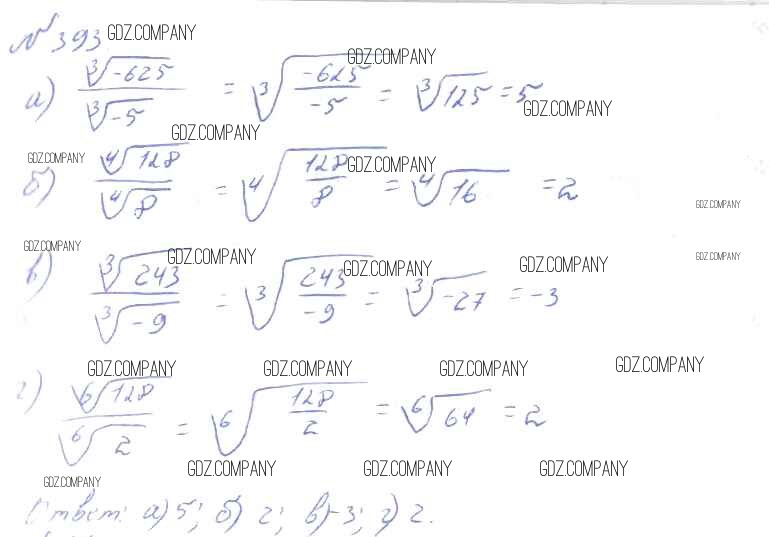 № 393 GDZ.COMPANY
GDZ.COMPANY
а) ∛-625 / ∛-5 = ∛(-625 / -5) = ∛125 = 5
GDZ.COMPANY
GDZ.COMPANY
GDZ.COMPANY GDZ.COMPANY
б) ∜128 / ∜8 = ∜(128 / 8) = ∜16 = 2
GDZ.COMPANY
GDZ.COMPANY GDZ.COMPANY GDZ.COMPANY GDZ.COMPANY GDZ.COMPANY
в) ∛243 / ∛-9 = ∛(243 / -9) = ∛-27 = -3
GDZ.COMPANY GDZ.COMPANY GDZ.COMPANY GDZ.COMPANY
г) ⁶√128 / ⁶√2 = ⁶√(128 / 2) = ⁶√64 = 2
GDZ.COMPANY GDZ.COMPANY GDZ.COMPANY
GDZ.COMPANY
Ответ: а) 5; б) 2; в) -3; г) 2.